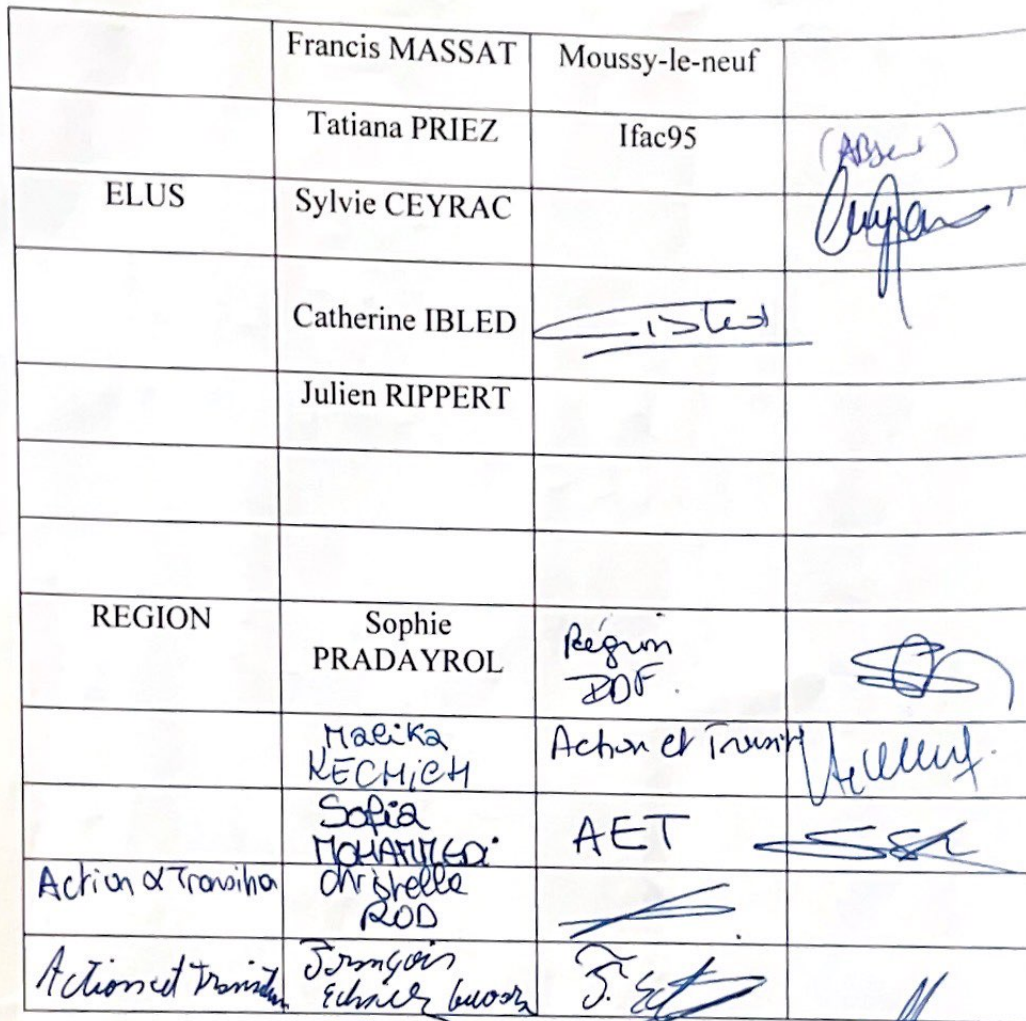 Francis MASSAT Moussy-le-neuf
Tatiana PRIEZ Ifac95 (Absent)
ELUS Sylvie CEYRAC
Catherine IBLED
Julien RIPPERT
REGION Sophie PRADAYROL Région IDF.
Malika KECHICH Action et Transit
Sofia MOHAMMEDI AET
Action & Transition Christelle ROD
Action et transition François